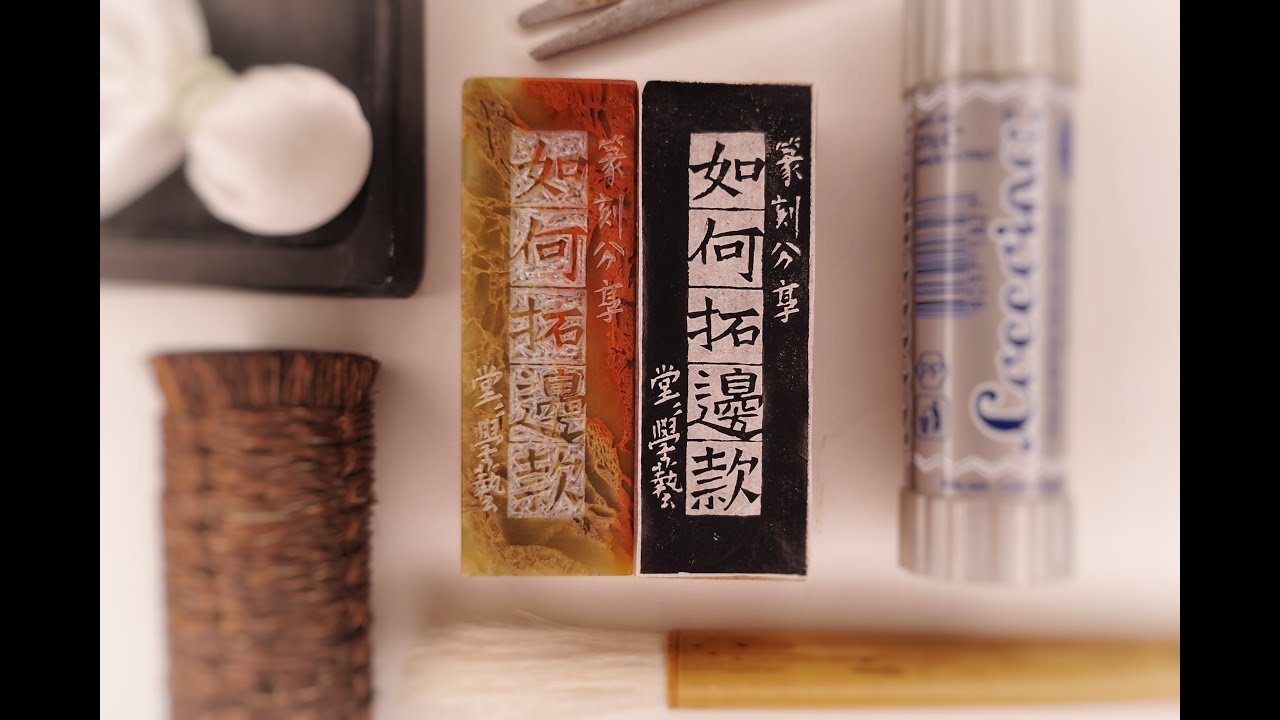 篆刻分享
如何拓邊款
堂〻學藝
篆刻分享
如何拓邊款
堂〻學藝
Coccoina